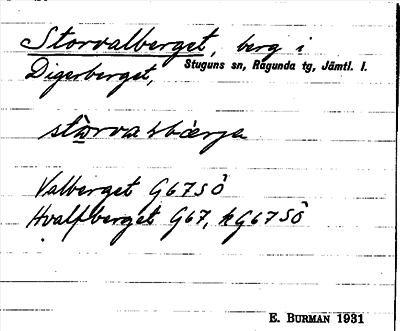 Storvalberget, berg i
Stuguns sn, Ragunda tg, Jämtl. l.
Digerberget,
Valberget G67SÖ
Hvalfberget G67, kG67SÖ
E. BURMAN 1931